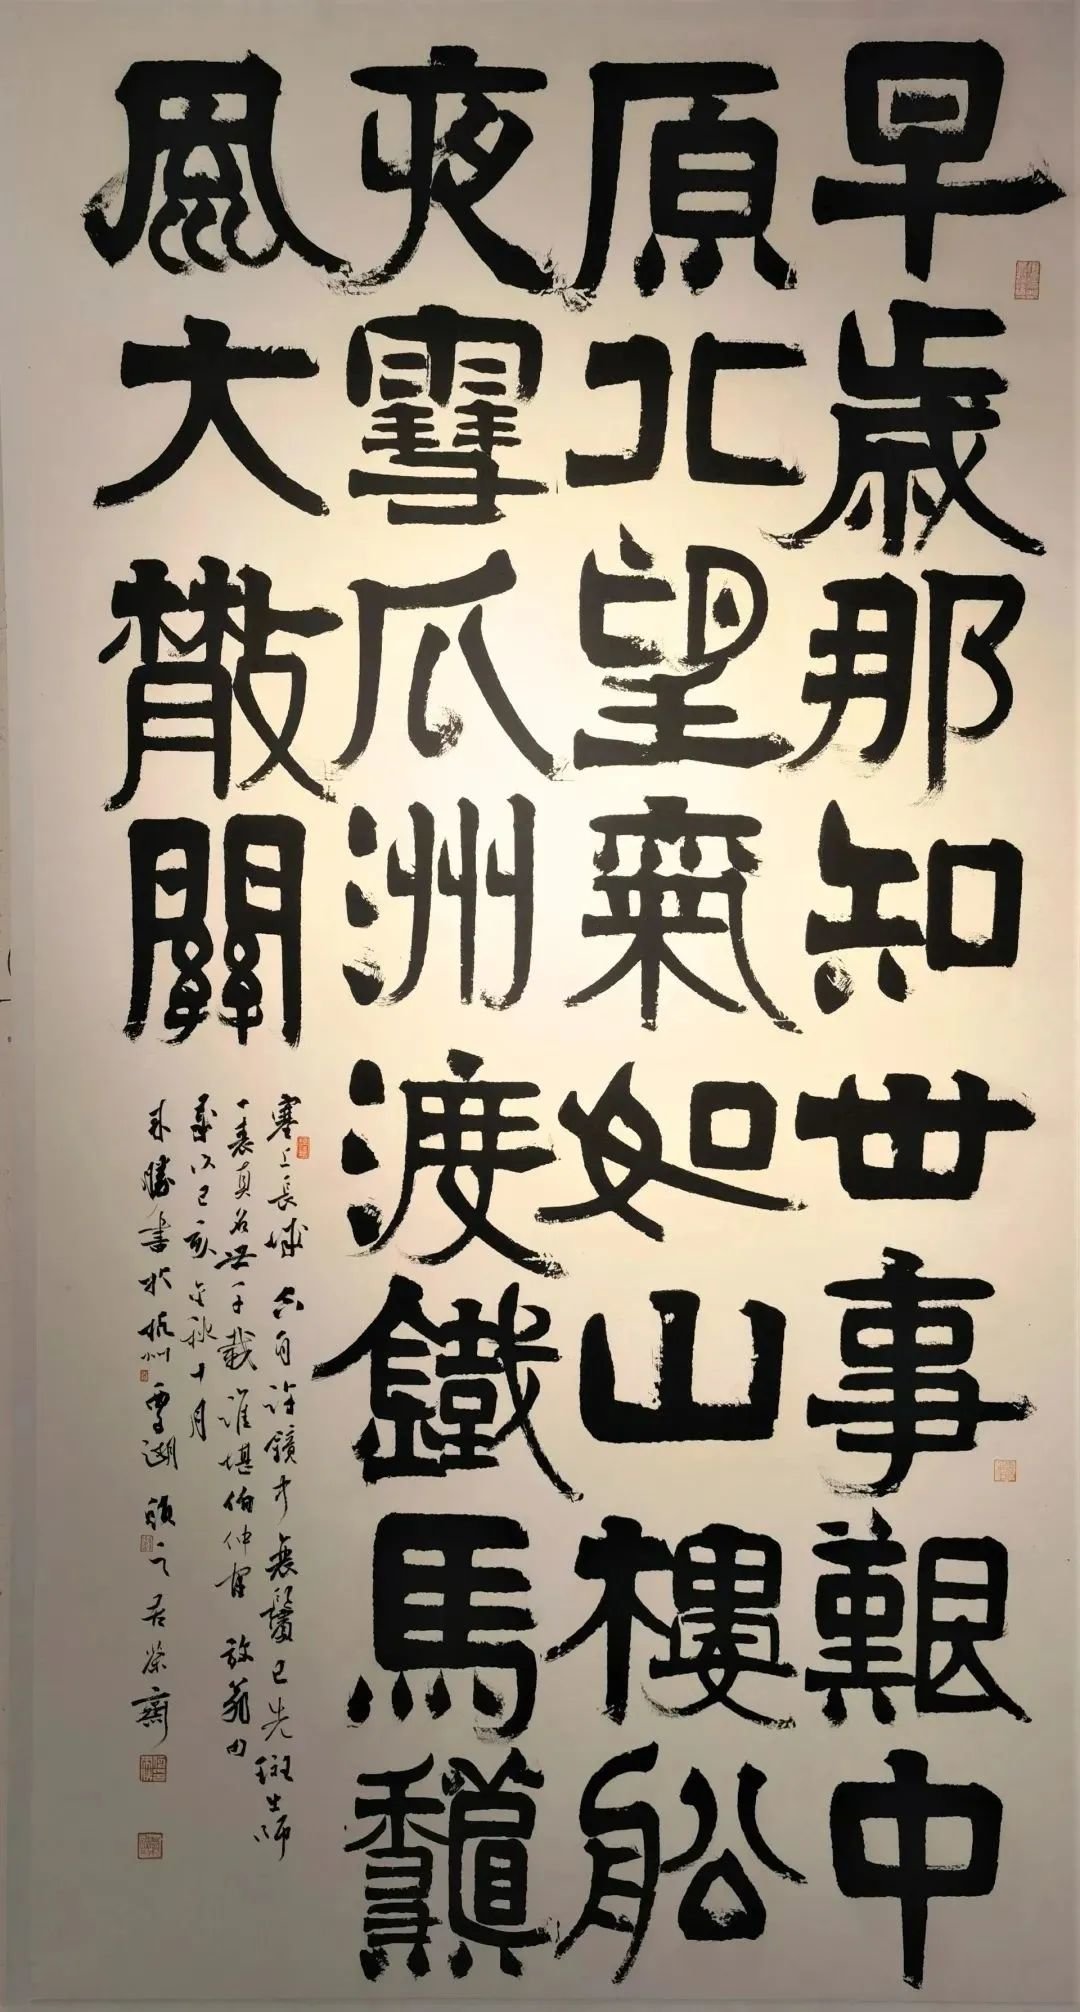 早歲那知世事艱中
原北望氣如山樓舩
夜雪瓜洲渡鐵馬龝
風大散關
塞上長城空自許鏡中衰鬢已先斑出師
一表真名世千載誰堪伯仲間 放翁句
歲次己亥年秋十月
勝書於杭州湖頤之居榮齋